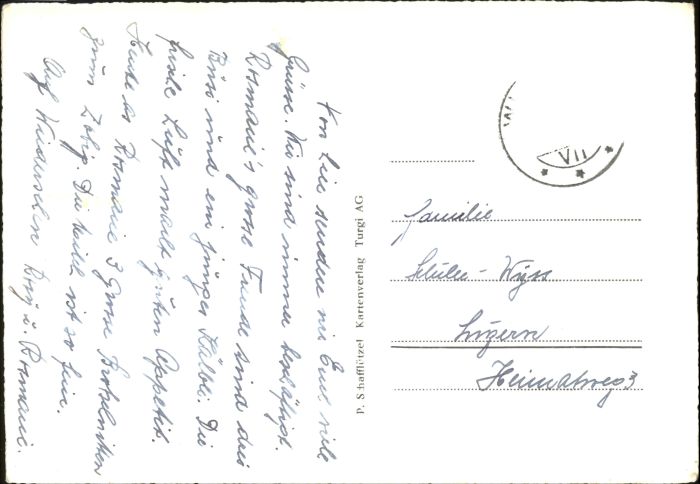 Von hier senden wir Euch viele
Grüsse. Wir sind immer beschäftigt.
Rosmarie's grosse Freude sind drei
Büsi und ein junges Kälbli. Die
frische Luft macht guten Appetit.
Heute as Rosmarie 3 grosse Brotschnitten
zum Zobig. Die Milch ist so fein.
Auf Wiedersehen Rosy u. Rosmarie.
P. Schafflützel Kartenverlag Turgi AG
VII
Familie
Schuler-Wyss
Luzern
Heimatweg 3